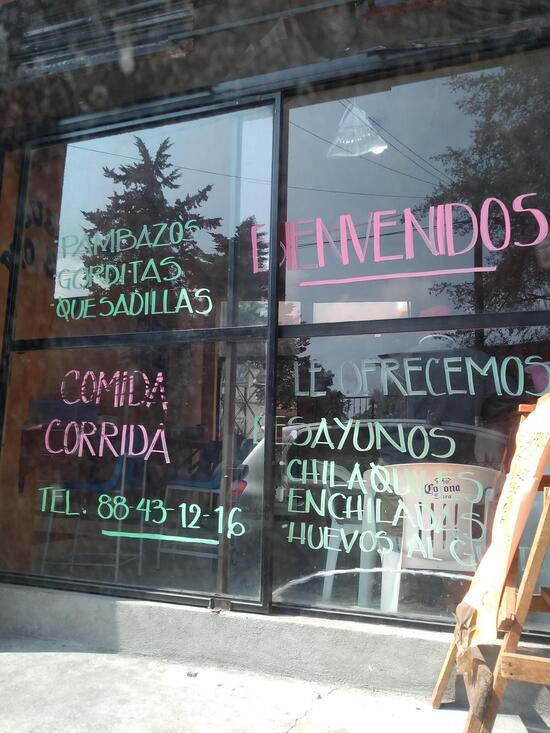 -PAMBAZOS
GORDITAS
-QUESADILLAS
COMIDA
CORRIDA
TEL. 88-43-12-16
BIENVENIDOS
LE OFRECEMOS
DESAYUNOS
-CHILAQUILES
ENCHILADAS
-HUEVOS AL
Corona
Extra